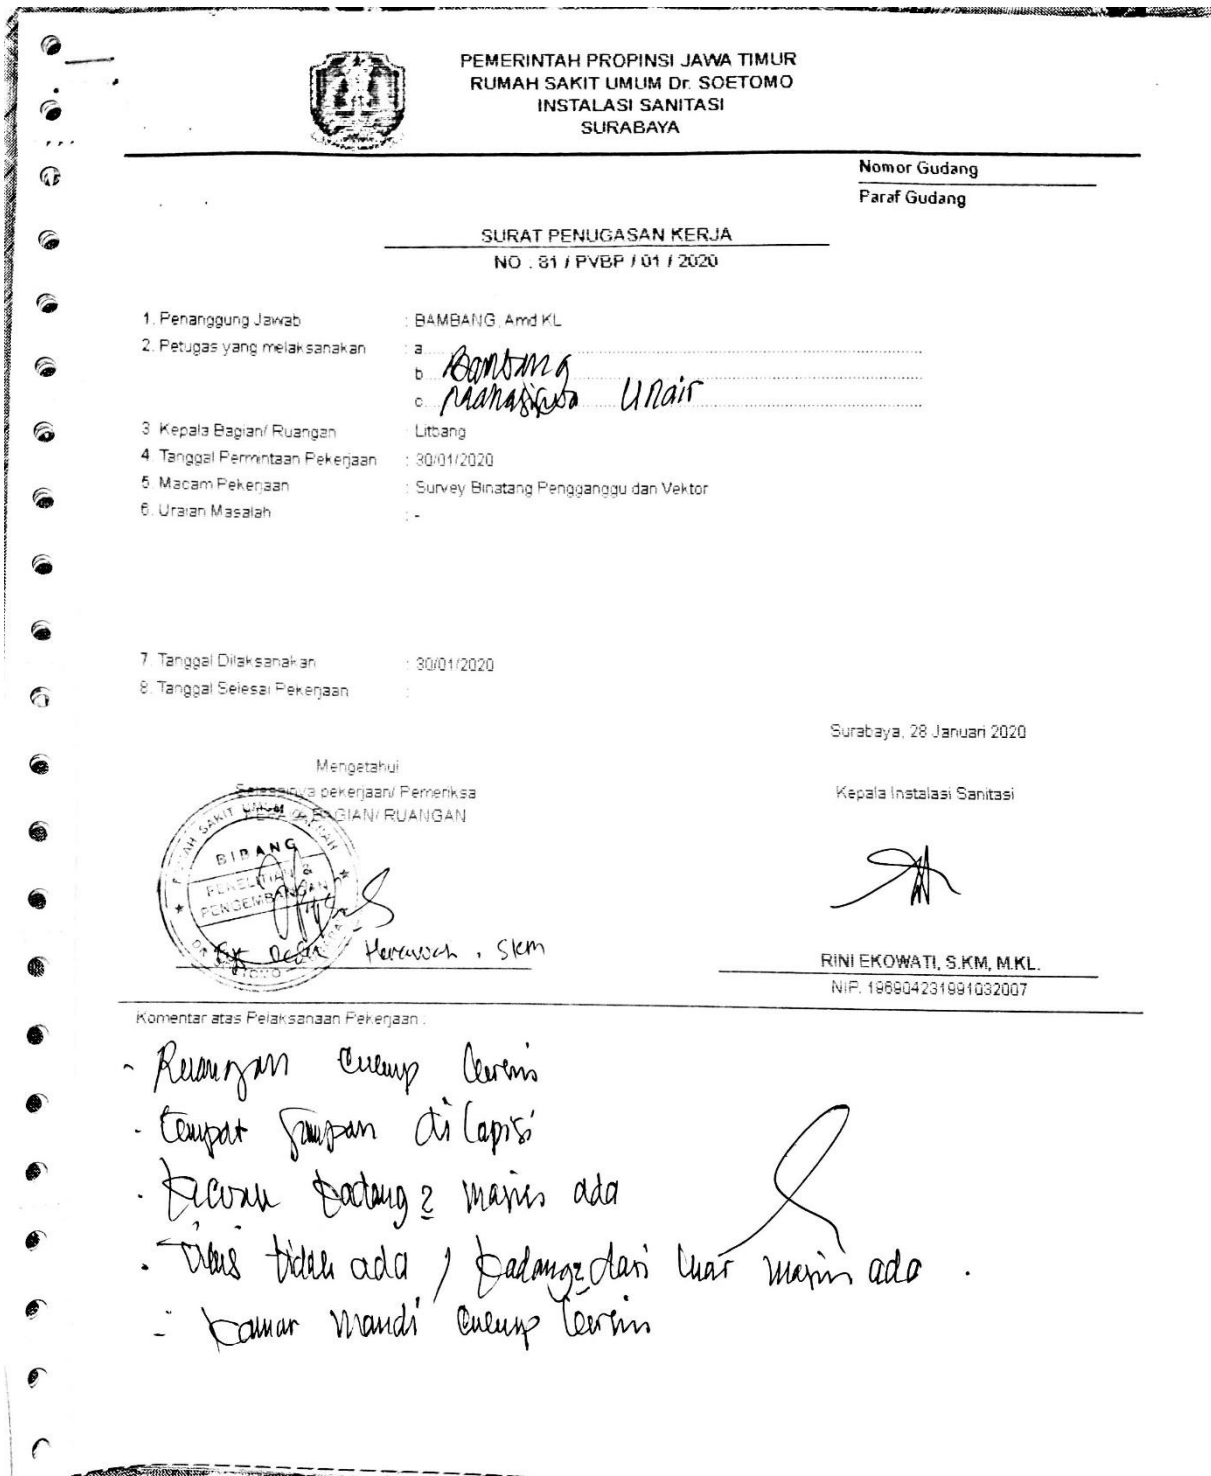 PEMERINTAH PROPINSI JAWA TIMUR
RUMAH SAKIT UMUM Dr. SOETOMO
INSTALASI SANITASI
SURABAYA
Nomor Gudang
Paraf Gudang
SURAT PENUGASAN KERJA
NO . 81 / PVBP / 01 / 2020
1. Penanggung Jawab : BAMBANG, Amd KL
2. Petugas yang melaksanakan : a
b Bambang
c. Mahasiswa Unair
3 Kepala Bagian/ Ruangan : Litbang
4 Tanggal Permintaan Pekerjaan : 30/01/2020
5 Macam Pekerjaan : Survey Binatang Pengganggu dan Vektor
6. Uraian Masalah : -
7. Tanggal Dilaksanakan : 30/01/2020
8. Tanggal Selesai Pekerjaan :
Surabaya, 28 Januari 2020
Mengetahui
Selesainya pekerjaan/ Pemeriksa
Kepala Instalasi Sanitasi
KEPALA BAGIAN/ RUANGAN
RUMAH SAKIT UMUM DAERAH
BIDANG
PENELITIAN &
PENGEMBANGAN
Herawati, SKM
RINI EKOWATI, S.KM, M.KL.
NIP. 196904231991032007
Komentar atas Pelaksanaan Pekerjaan :
- Ruangan cukup bersih
- tempat sampah dilapisi
- kadang2 masih ada
- tikus tidak ada, kadang2 dari luar masih ada .
- kamar mandi cukup bersih